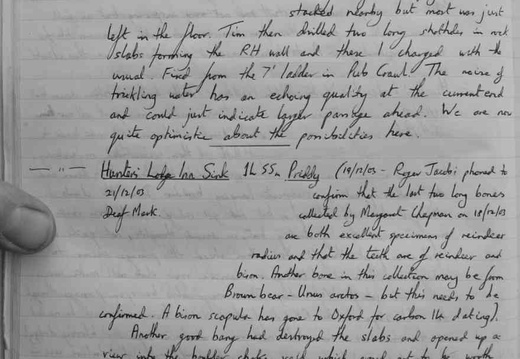 stacked nearby but most was just
left in the floor. Tim then drilled two long shotholes in rock
slabs forming the RH wall and these I charged with the
usual. Fired from the 7' ladder in Pub Crawl. The noise of
trickling water has an echoing quality at the current end
and could just indicate larger passage ahead. We are now
quite optimistic about the possibilities here.
— " — Hunters' Lodge Inn Sink 1h 55m Priddy (19/12/03 - Roger Jacobi phoned to
21/12/03 confirm that the last two long bones
Deaf Mark. collected by Margaret Chapman on 18/12/03
are both excellent specimens of reindeer
radius and that the teeth are of reindeer and
bison. Another bone in this collection may be from
Brown bear - Ursus arctos - but this needs to be
confirmed. A bison scapula has gone to Oxford for carbon 14 dating).
Another good bang had destroyed the slabs and opened up a
view into the boulder choke void which